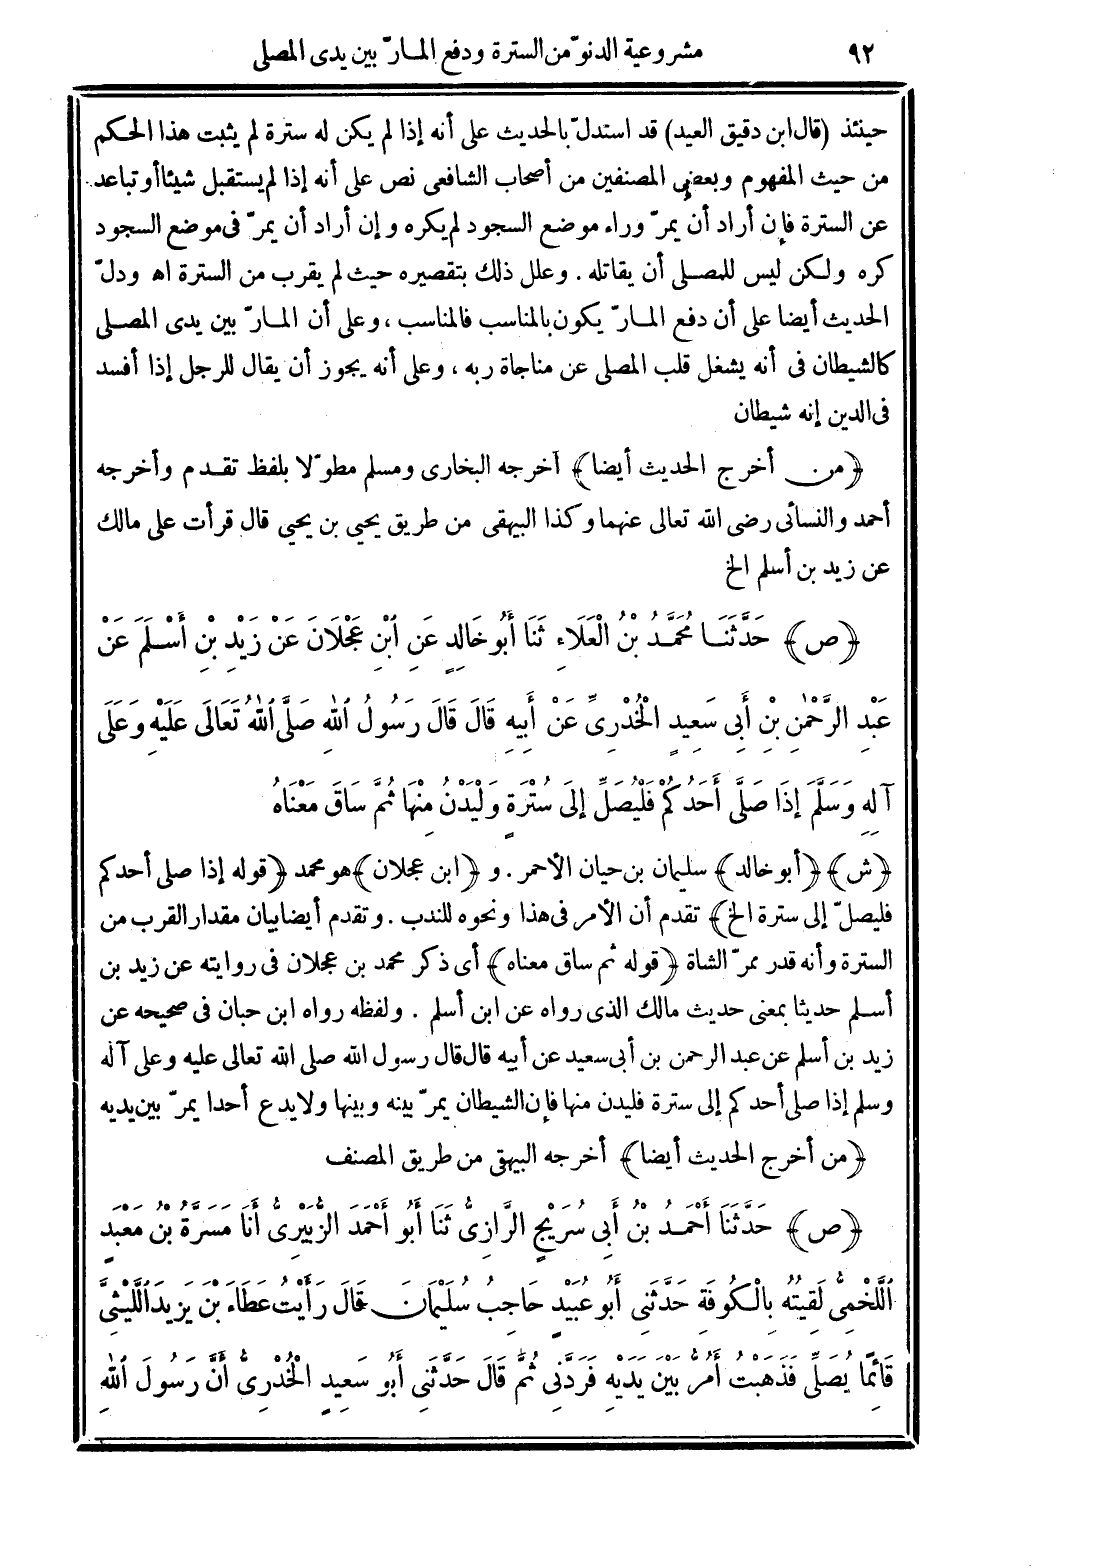 ٩٢
مشروعية الدنوّ من السترة ودفع المارّ بين يدى المصلى
حينئذ (قال ابن دقيق العيد) قد استدلّ بالحديث على أنه إذا لم يكن له سترة لم يثبت هذا الحكم
من حيث المفهوم وبعض المصنفين من أصحاب الشافعى نص على أنه إذا لم يستقبل شيئا أو تباعد
عن السترة فإن أراد أن يمرّ وراء موضع السجود لم يكره وإن أراد أن يمرّ فى موضع السجود
كره ولكن ليس للمصلى أن يقاتله . وعلل ذلك بتقصيره حيث لم يقرب من السترة اه ودلّ
الحديث أيضا على أن دفع المارّ يكون بالمناسب فالمناسب ، وعلى أن المارّ بين يدى المصلى
كالشيطان فى أنه يشغل قلب المصلى عن مناجاة ربه ، وعلى أنه يجوز أن يقال للرجل إذا أفسد
فى الدين إنه شيطان
﴿من أخرج الحديث أيضا﴾ أخرجه البخارى ومسلم مطوّلا بلفظ تقدم وأخرجه
أحمد والنسائى رضى الله تعالى عنهما وكذا البيهقى من طريق يحيى بن يحيى قال قرأت على مالك
عن زيد بن أسلم الخ
﴿ص﴾ حَدَّثَنَا مُحَمَّدُ بْنُ الْعَلَاءِ ثَنَا أَبُو خَالِدٍ عَنِ ابْنِ عَجْلَانَ عَنْ زَيْدِ بْنِ أَسْلَمَ عَنْ
عَبْدِ الرَّحْمٰنِ بْنِ أَبِى سَعِيدٍ الْخُدْرِىِّ عَنْ أَبِيهِ قَالَ قَالَ رَسُولُ اللهِ صَلَّى اللهُ تَعَالَى عَلَيْهِ وَعَلَى
آلِهِ وَسَلَّمَ إِذَا صَلَّى أَحَدُكُمْ فَلْيُصَلِّ إِلَى سُتْرَةٍ وَلْيَدْنُ مِنْهَا ثُمَّ سَاقَ مَعْنَاهُ
﴿ش﴾ ﴿أبو خالد﴾ سليمان بن حيان الأحمر . و ﴿ابن عجلان﴾ هو محمد ﴿قوله إذا صلى أحدكم
فليصلّ إلى سترة الخ﴾ تقدم أن الأمر فى هذا ونحوه للندب . وتقدم أيضا بيان مقدار القرب من
السترة وأنه قدر ممرّ الشاة ﴿قوله ثم ساق معناه﴾ أى ذكر محمد بن عجلان فى روايته عن زيد بن
أسلم حديثا بمعنى حديث مالك الذى رواه عن ابن أسلم . ولفظه رواه ابن حبان فى صحيحه عن
زيد بن أسلم عن عبد الرحمن بن أبى سعيد عن أبيه قال قال رسول الله صلى الله تعالى عليه وعلى آله
وسلم إذا صلى أحدكم إلى سترة فليدن منها فإن الشيطان يمرّ بينه وبينها ولا يدع أحدا يمرّ بين يديه
﴿من أخرج الحديث أيضا﴾ أخرجه البيهقى من طريق المصنف
﴿ص﴾ حَدَّثَنَا أَحْمَدُ بْنُ أَبِى سُرَيْجٍ الرَّازِىُّ ثَنَا أَبُو أَحْمَدَ الزُّبَيْرِىُّ أَنَا مَسَرَّةُ بْنُ مَعْبَدٍ
اللَّخْمِىُّ لَقِيتُهُ بِالْكُوفَةِ حَدَّثَنِى أَبُو عُبَيْدٍ حَاجِبُ سُلَيْمَانَ قَالَ رَأَيْتُ عَطَاءَ بْنَ يَزِيدَ اللَّيْثِىَّ
قَائِمًا يُصَلِّى فَذَهَبْتُ أَمُرُّ بَيْنَ يَدَيْهِ فَرَدَّنِى ثُمَّ قَالَ حَدَّثَنِى أَبُو سَعِيدٍ الْخُدْرِىُّ أَنَّ رَسُولَ اللهِ